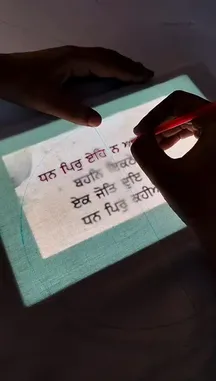 ਧਨ ਪਿਰੁ ਏਹਿ ਨ
ਬਹਨਿ ਇਕਠੇ
ਏਕ ਜੋਤਿ ਦੁਇ
ਧਨ ਪਿਰੁ ਕਹੀਐ